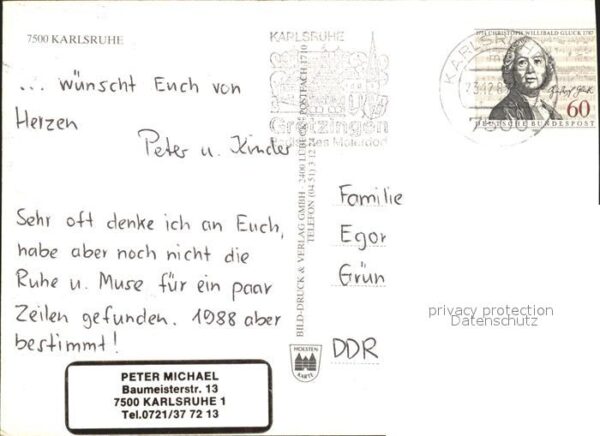 7500 KARLSRUHE
... wünscht Euch von
Herzen
Peter u. Kinder
Sehr oft denke ich an Euch,
habe aber noch nicht die
Ruhe u. Muse für ein paar
Zeilen gefunden. 1988 aber
bestimmt!
PETER MICHAEL
Baumeisterstr. 13
7500 KARLSRUHE 1
Tel.0721/37 72 13
KARLSRUHE
Grötzingen
Malerdorf
BILD-DRUCK & VERLAG GMBH · 2400 LÜBECK · POSTFACH 1710
TELEFON (04 51) 3 12 24
HOLSTEN
KARTE
1714 CHRISTOPH WILLIBALD GLUCK 1787
60
DEUTSCHE BUNDESPOST
KARLSRUHE
7500
Familie
Egor
Grün
DDR
privacy protection
Datenschutz